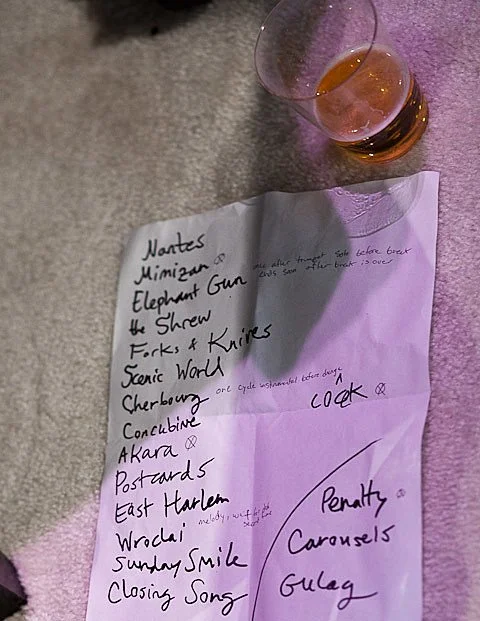 Nantes
Mimizan ⊗
one after trumpet solo before break
ends soon after break is over
Elephant Gun
the Shrew
Forks & Knives
Scenic World
Cherbourg
one cycle instrumental before
COEK ⊗
Concubine
Akara ⊗
Postcards
East Harlem
melody, wait for
Wroclai
Sunday Smile
Closing Song
Penalty ⊗
Carousels
Gulag